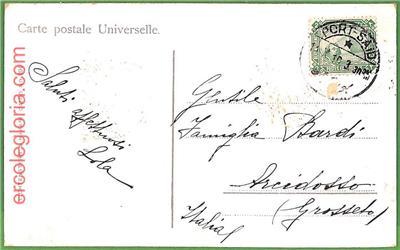 Carte postale Universelle.
PORT-SAID
Saluti
affettuosi
Lola
Gentile
Famiglia Bardi
Arcidosso
(Grosseto)
Italia
ercolegloria.com